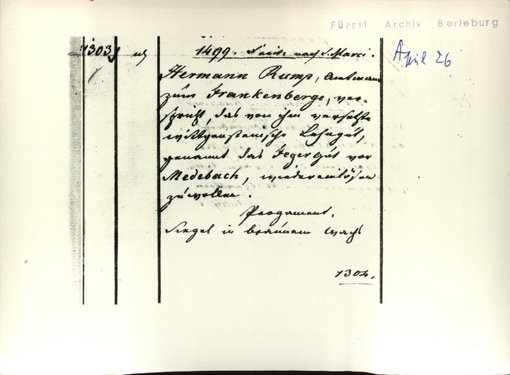 Fürstl. Archiv Berleburg
April 26
1303
1499. Freit. nach S. Marci.
Hermann Rump, Amtmann
zum Frankenberge, ver-
spricht, das von ihm versetzte
wittgensteinische Lehngut,
genannt das Jegergut vor
Medebach, wiedereinlösen
zu wollen.
Pergament.
Siegel in braunem Wachs
1304.